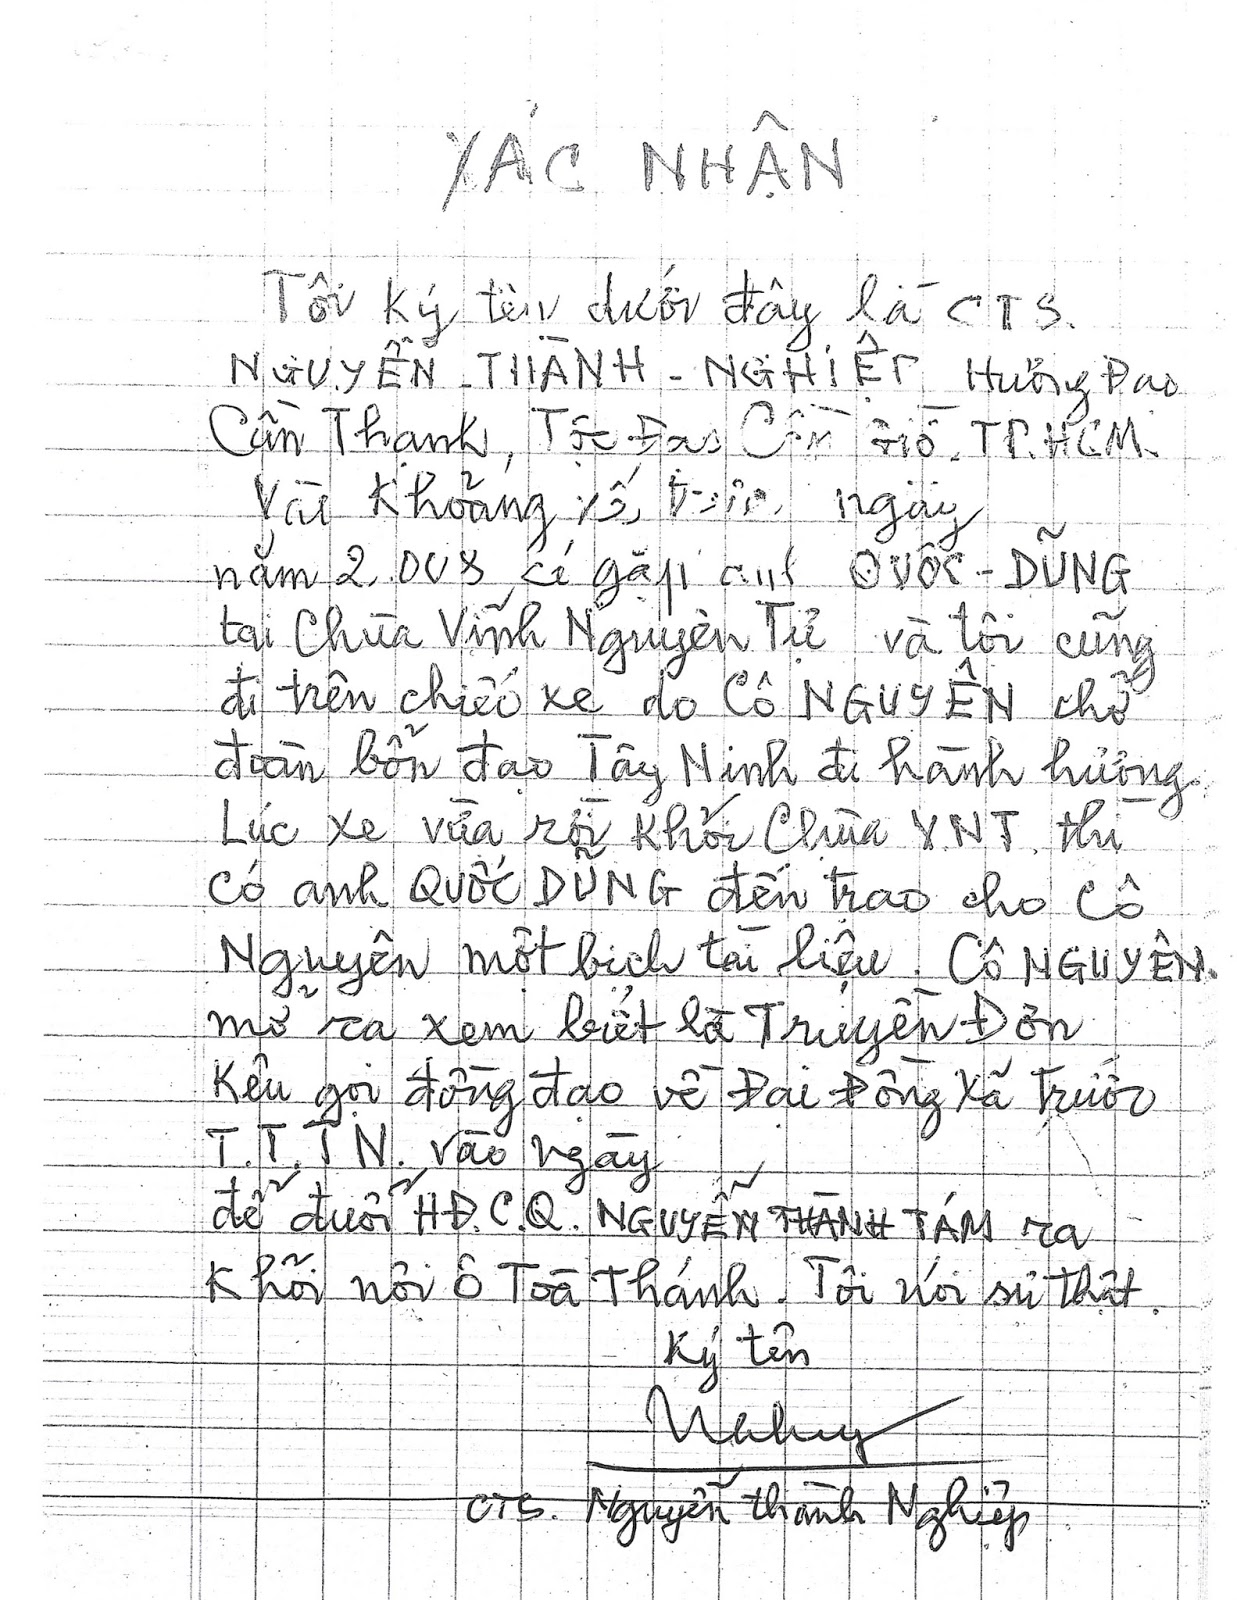 XÁC NHẬN
Tôi ký tên dưới đây là CTS.
NGUYỄN - THÀNH - NGHIỆP Hương Đạo
Cần Thạnh, Tộc Đạo Cần Giờ. TP.HCM.
Vào Khoảng xế, ngày
năm 2.008 có gặp anh QUỐC - DŨNG
tại Chùa Vĩnh Nguyên Tự và tôi cũng
đi trên chiếc xe do Cô NGUYÊN chở
đoàn bổn đạo Tây Ninh đi hành hương.
Lúc xe vừa rời khỏi Chùa V.N.T. thì
có anh QUỐC DŨNG đến trao cho Cô
Nguyên một bịch tài liệu. Cô NGUYÊN.
mở ra xem biết là Truyền Đơn
Kêu gọi đồng đạo về Đại Đồng Xã Trước
T.T.T N. vào ngày
để đuổi HĐ.C.Q. NGUYỄN THÀNH TÁM ra
Khỏi nội Ô Toà Thánh. Tôi nói sự thật.
Ký tên
CTS. Nguyễn thành Nghiệp